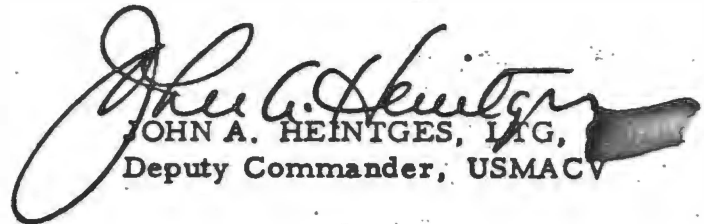 John A. Heintges
JOHN A. HEINTGES, LTG,
Deputy Commander, USMACV